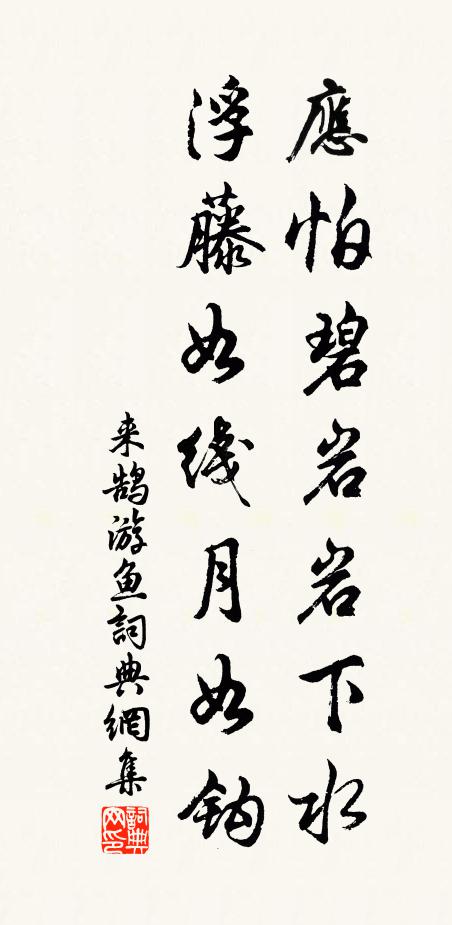 應怕碧岩岩下水
浮藤如线月如钩
来鹄游鱼詞典網集
詞典网印